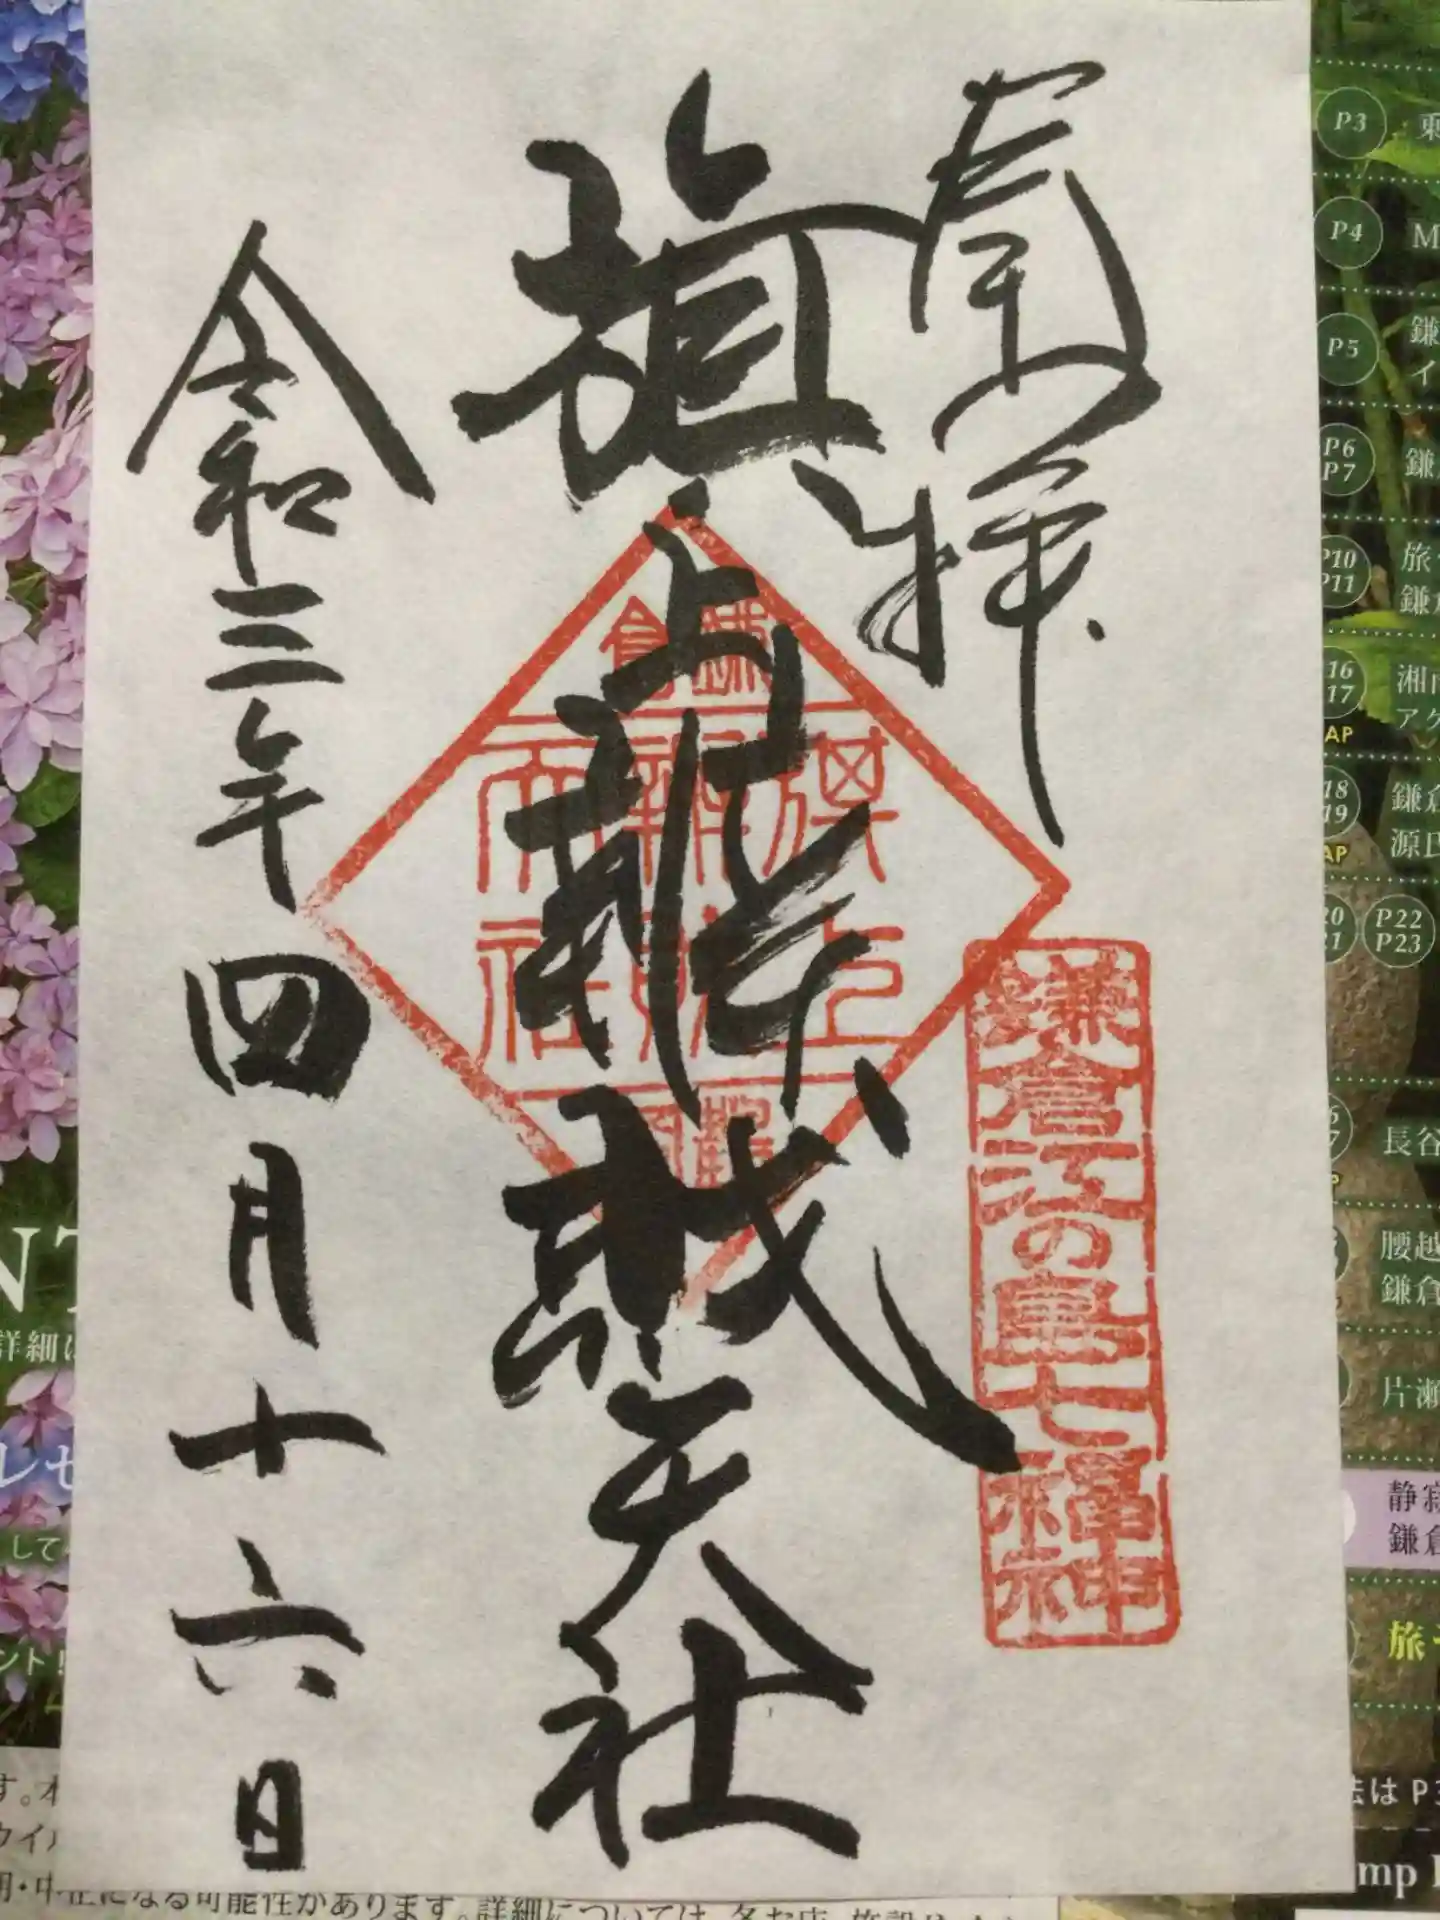 奉拝
旗上辨財天社
令和三年四月十六日
鎌倉
旗上
辨財
天社
鎌倉江の島七福神
P3
P4
M
P5
鎌
イ
P6
P7
鎌
P10
P11
旅
鎌倉
16
17
湘南
アク
AP
18
19
鎌倉
源氏
AP
20
21
P22
P23
長谷
腰越
鎌倉
片瀬
静寂
鎌倉
旅
法は P3
mp
NT
詳細は
レゼ
して
ント!
す。本
ウイル
期・中止になる可能性があります。詳細については、各お店、施設